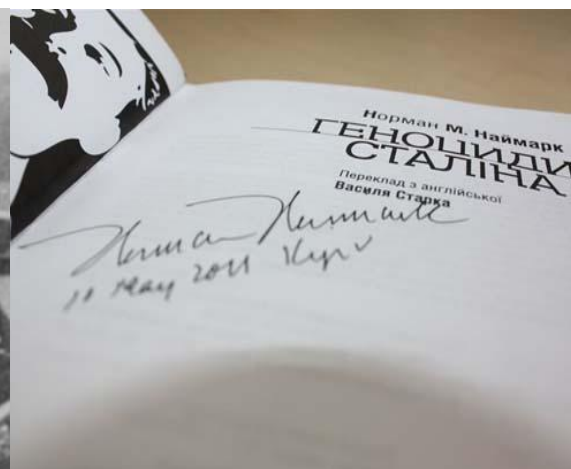 Норман М. Наймарк
ГЕНОЦИДИ
СТАЛІНА
Переклад з англійської
Василя Старка
Norman Naimark
May 2011 Kyiv